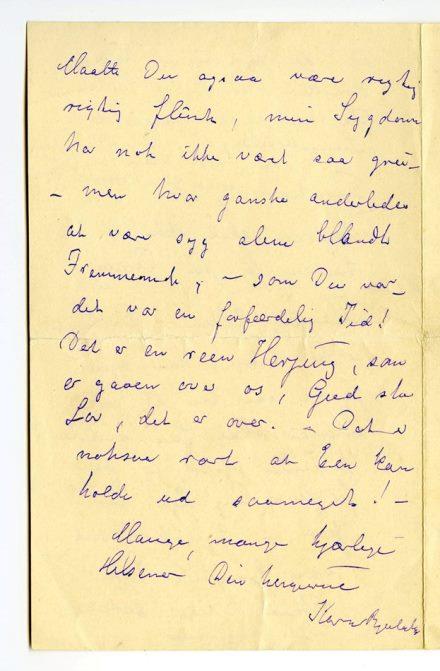 Maatte Du ogsaa være rigtig
rigtig flink, min Sygdom
har nok ikke været saa grei
– men hvor ganske anderledes
at være syg alene blandt
Fremmende, – som Du var –
det var en forfærdelig Tid!
Det er en reen Herjing, som
er gaaen over os, Gud ske
Lov, det er over. – Det er
noksaa rart at Een kan
holde ud saameget! –
Mange, mange kjærlige
Hilsener Din hengivne